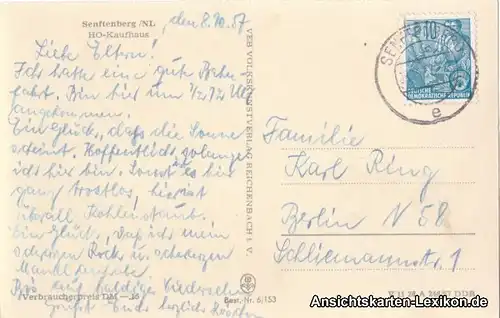 Senftenberg /NL
HO-Kaufhaus
, den 8.10.57
Liebe Eltern!
Ich hatte eine gute Bahn-
fahrt. Bin hier um 1/2 12 Uhr
angekommen.
Ein Glück, daß die Sonne
scheint. Hoffentlich solange
ich hier bin. Sonst ist es hier
ganz trostlos, hier ist
überall Kohlenstaub.
Ein Glück, daß ich mein
schwarzen Rock u. schwarzen
Mantel
Bis auf baldige Wiedersehn
grüßt Euch herzlich
Verbraucherpreis DM —.16
VEB VOLKSKUNSTVERLAG REICHENBACH i. V.
Best.-Nr. 6/153
SENFTENBERG
e
DEUTSCHE
DEMOKRATISCHE REPUBLIK
Familie
Karl Ring
Berlin N 58
Schliemannstr. 1
DDR
Ansichtskarten-Lexikon.de